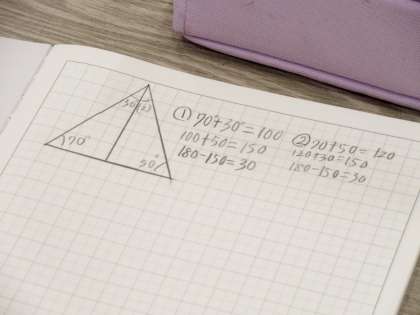 30° ②
70°
50°
① 70°+30°=100
100+50=150
180-150=30
② 70+50=120
120+30=150
180-150=30